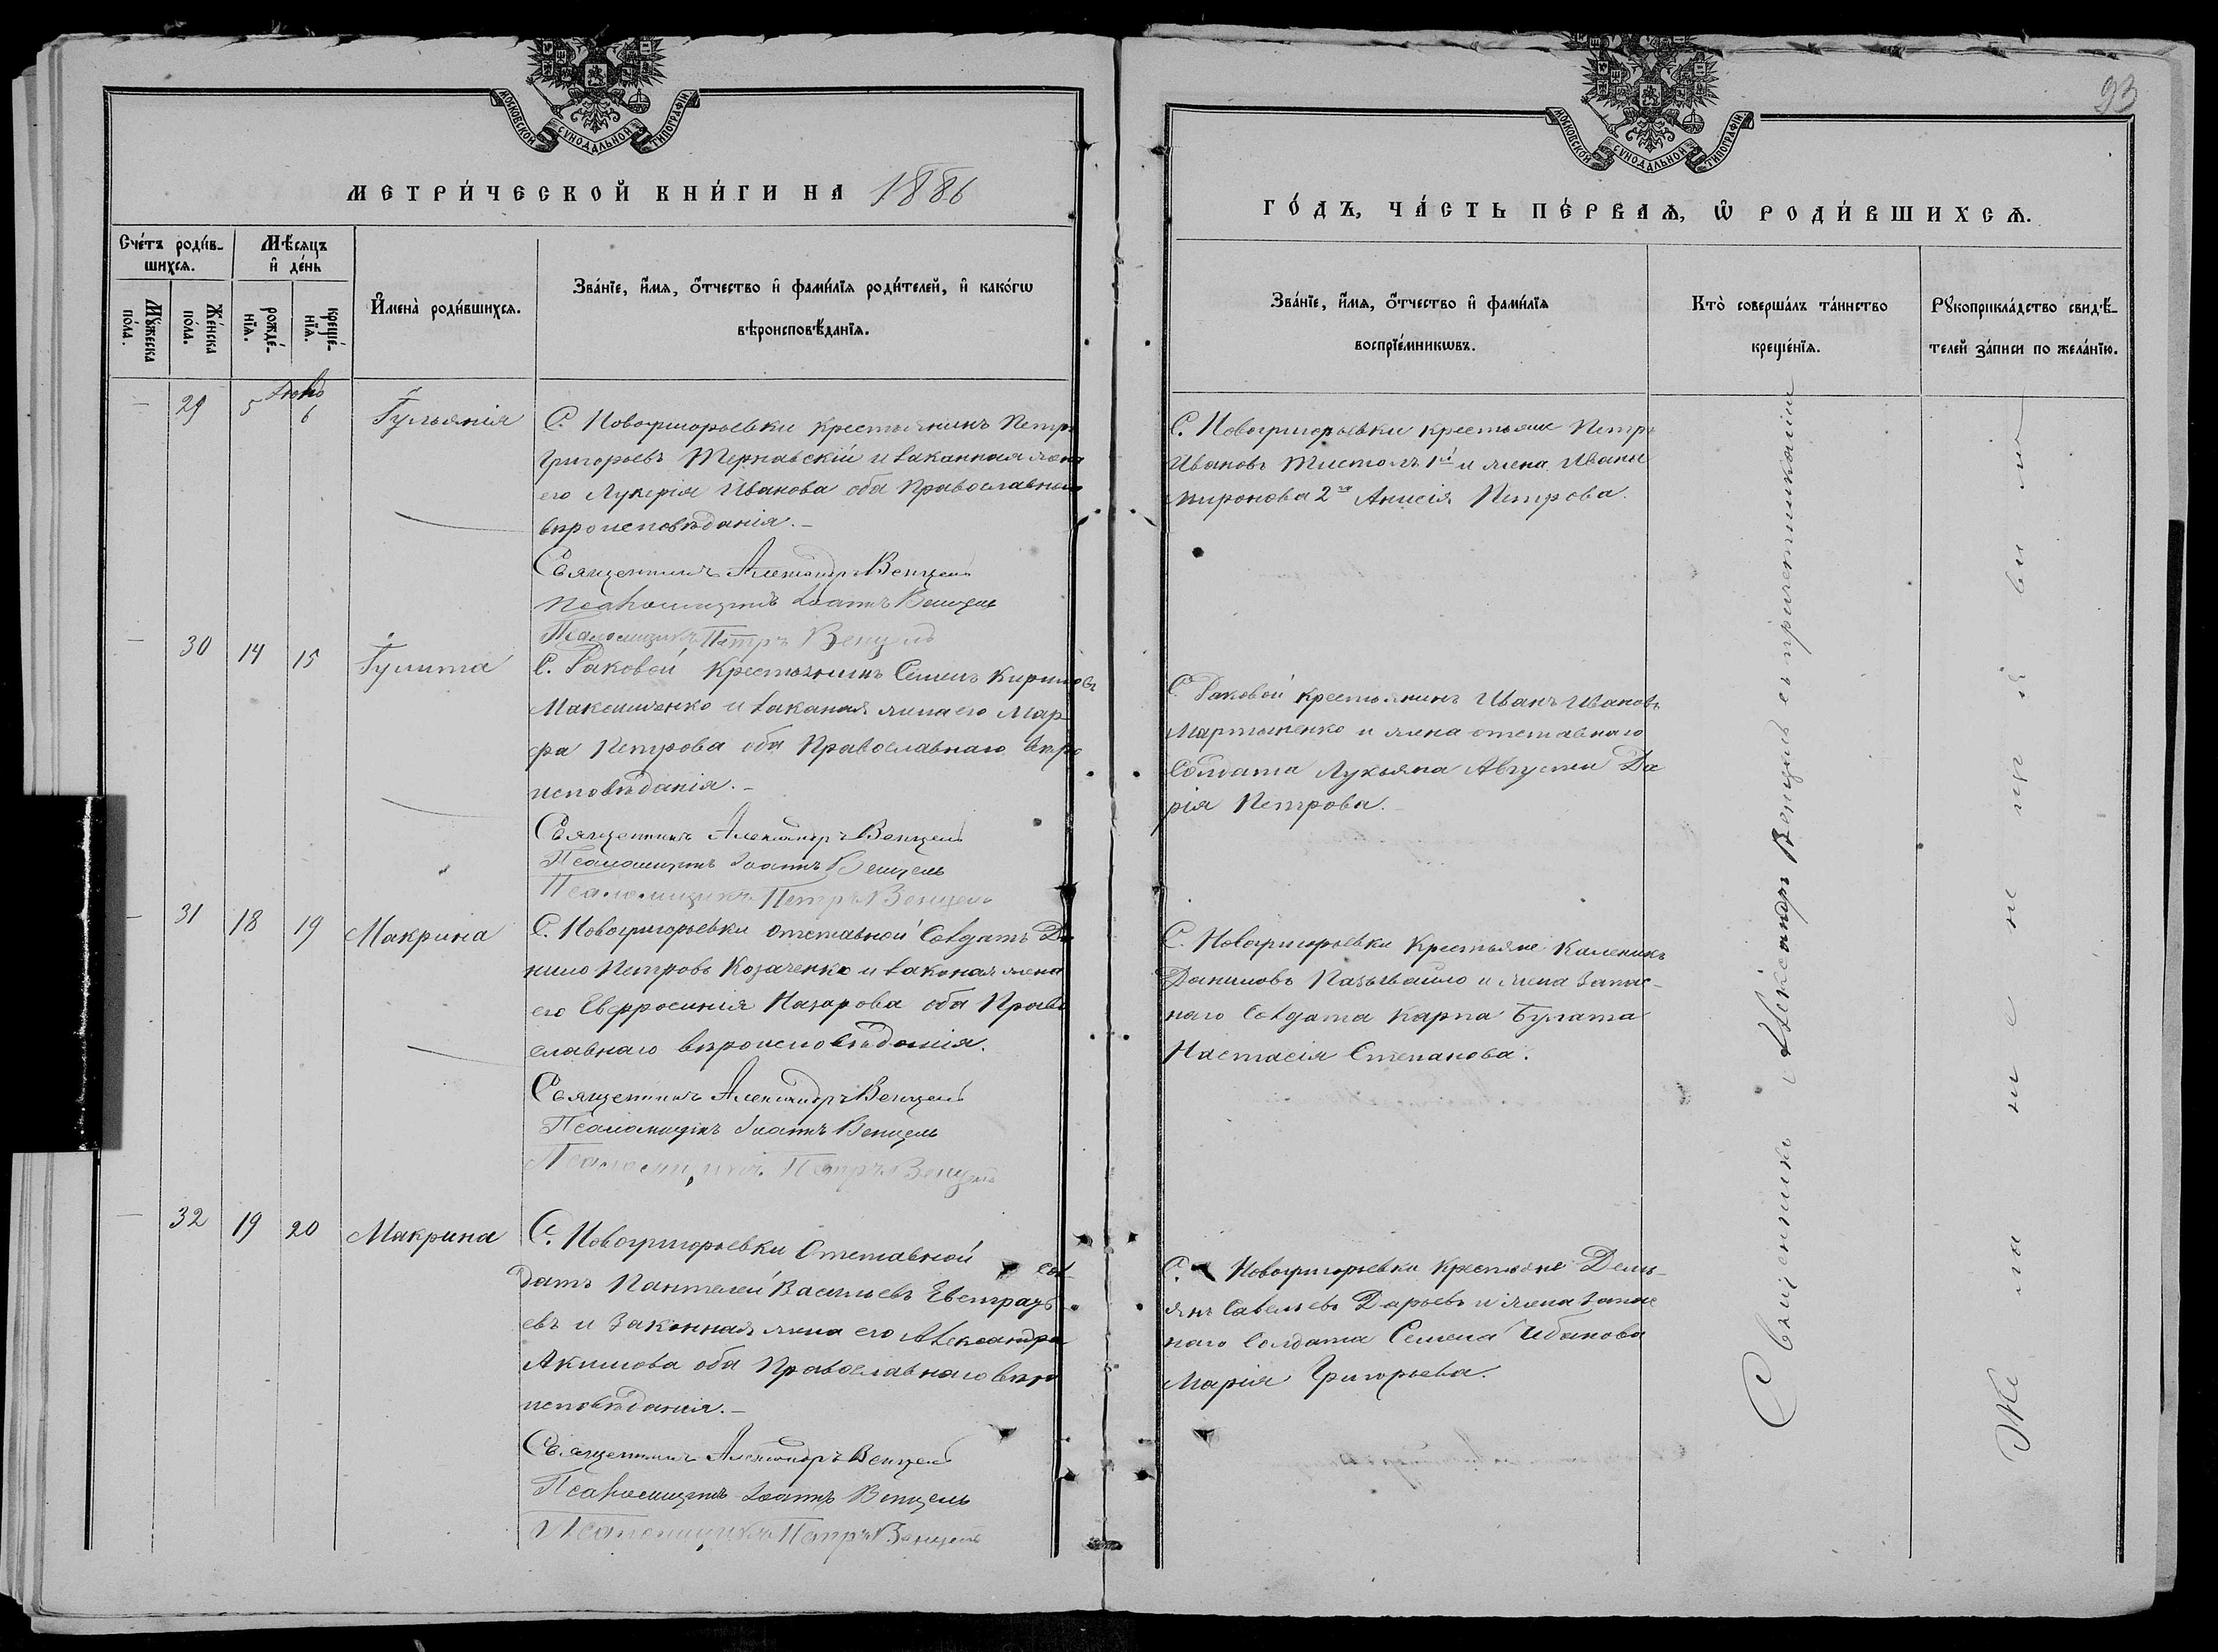 93
МОСКОВСКОЙ СѴНОДАЛЬНОЙ ТИПОГРАФІИ
МОСКОВСКОЙ СѴНОДАЛЬНОЙ ТИПОГРАФІИ
МЕТРИ́ЧЕСКОЙ КНИ́ГИ НА 1886
ГО́ДЪ, ЧА́СТЬ ПЕ́РВАѦ, Ѡ҆ РОДИ́ВШИХСѦ.
Сче́тъ роди́в-
шихсѧ.
Мѣ́сяцъ
и҆ де́нь
Мꙋ́жеска
по́ла.
Же́нска
по́ла.
рожде́-
нїѧ.
креще́-
нїѧ.
И҆мена̀ роди́вшихсѧ.
Зва́нїе, и҆́мѧ, ѻ҆́тчество и҆ фами́лїѧ роди́телей, и҆ како́гѡ
вѣроисповѣ́данїѧ.
Зва́нїе, и҆́мѧ, ѻ҆́тчество и҆ фами́лїѧ
воспрїе́мникѡвъ.
Кто̀ соверша́лъ та́инство
креще́нїѧ.
Рꙋкоприкла́дство свидѣ́-
телей за́писи по жела́нїю.
— 29 5 6
Іульянія
С. Новогригорьевки крестьянинъ Петръ
Григорьевъ Тернавскій и законная жена
его Лукерія Иванова оба Православнаго
вѣроисповѣданія.
Священникъ Александръ Венцель
Псаломщикъ Іоаннъ Венцель
Псаломщикъ Петръ Венцель
С. Новогригорьевки крестьяне Петръ
Ивановъ 1й и жена Ивана
Миронова 2я Анисія Петрова.
— 30 14 15
Іулита
С. Раковой Крестьянинъ Семенъ Кириловъ
Максименко и законая жена его Мар
фа Петрова оба Православнаго вѣро
исповѣданія.
Священникъ Александръ Венцель
Псаломщикъ Іоаннъ Венцель
Псаломщикъ Петръ Венцель
С. Раковой крестьянинъ Иванъ Ивановъ
Мартыненко и жена отставнаго
Солдата Лукьяна Да
рія Петрова.
— 31 18 19
Макрина
С. Новогригорьевки отставной Солдатъ Да
нило Петровъ Козаченко и законая жена
его Евфросинія Назарова оба Право
славнаго вѣроисповѣданія.
Священникъ Александръ Венцель
Псаломщикъ Іоаннъ Венцель
Псаломщикъ Петръ Венцель
С. Новогригорьевки Крестьяне Каленикъ
Даниловъ и жена Запас-
наго Солдата Карпа Булата
Настасія Степанова.
— 32 19 20
Макрина
С. Новогригорьевки Отставной Сол-
датъ Пантелей Васильевъ
евъ и Законная жена его Александра
Акимова оба Православнаго вѣро
исповѣданія.
Священникъ Александръ Венцель
Псаломщикъ Іоаннъ Венцель
Псаломщикъ Петръ Венцель
С. Новогригорьевки Крестьяне Демь-
янъ Савельевъ Дарьевъ и жена Запас
наго Солдата Семена Иванова
Марія Григорьева.
Священникъ Александръ Венцель съ причетниками